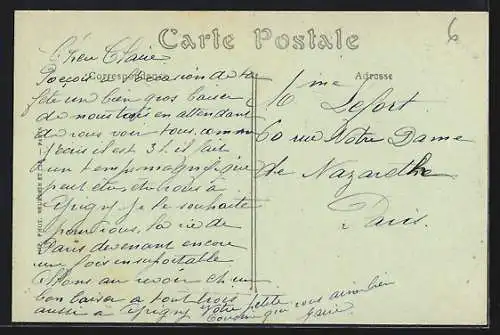 6
Carte Postale
Correspondance
Adresse
Chère Claire
Reçois à l'occasion de ta
fête un bien gros baiser
de nous tous en attendant
de vous voir tous, comme
je crois il est 3h. il fait
un temps magnifique
peut être, de vous à
Epigny je le souhaite
pour vous, la vie de
Paris devenant encore
une fois insuportable
Allons au revoir et un
bon baiser à tout trois
aussi à Epigny Votre petite
Cousine qui vous aime bien
Mme Lefort
60 rue Notre Dame
de Nazarethe
Paris.
PHOT. NEURDEIN ET CIE. PARIS